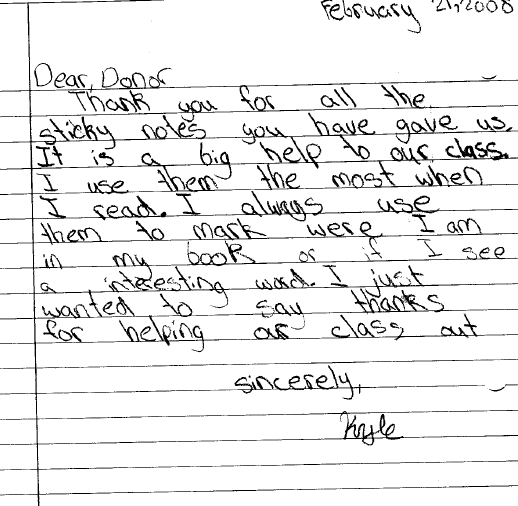 February 21, 2008
Dear, Donor
Thank you for all the
sticky notes you have gave us.
It is a big help to our class.
I use them the most when
I read. I always use
them to mark were I am
in my book or if I see
a interesting word. I just
wanted to say thanks
for helping our class out
sincerely,
Kyle